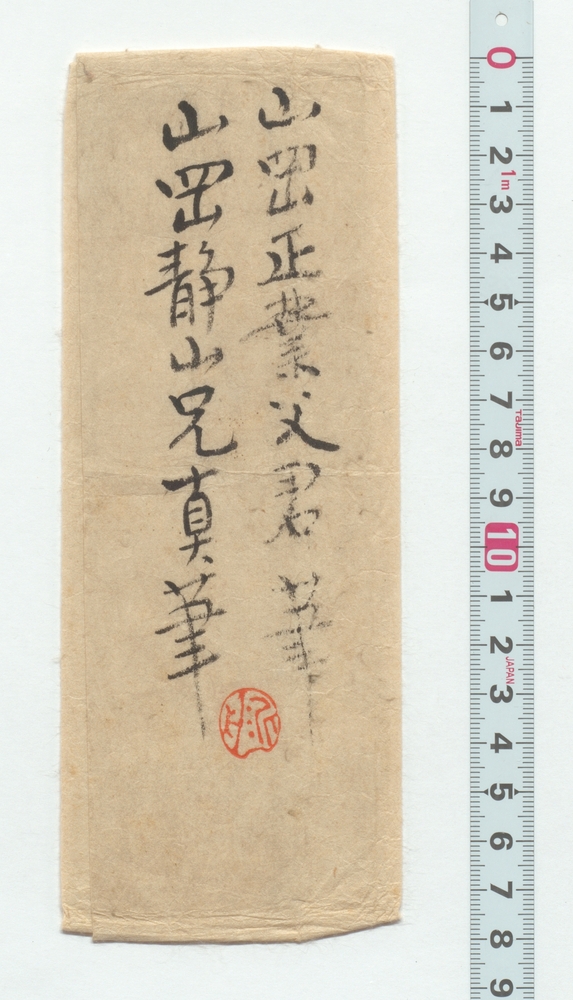 山岡正業父君 筆
山岡静山兄真筆
0
1
2
1m
3
4
5
6
7
Tajima
8
9
10
1
2
JAPAN
3
4
5
6
7
8
9